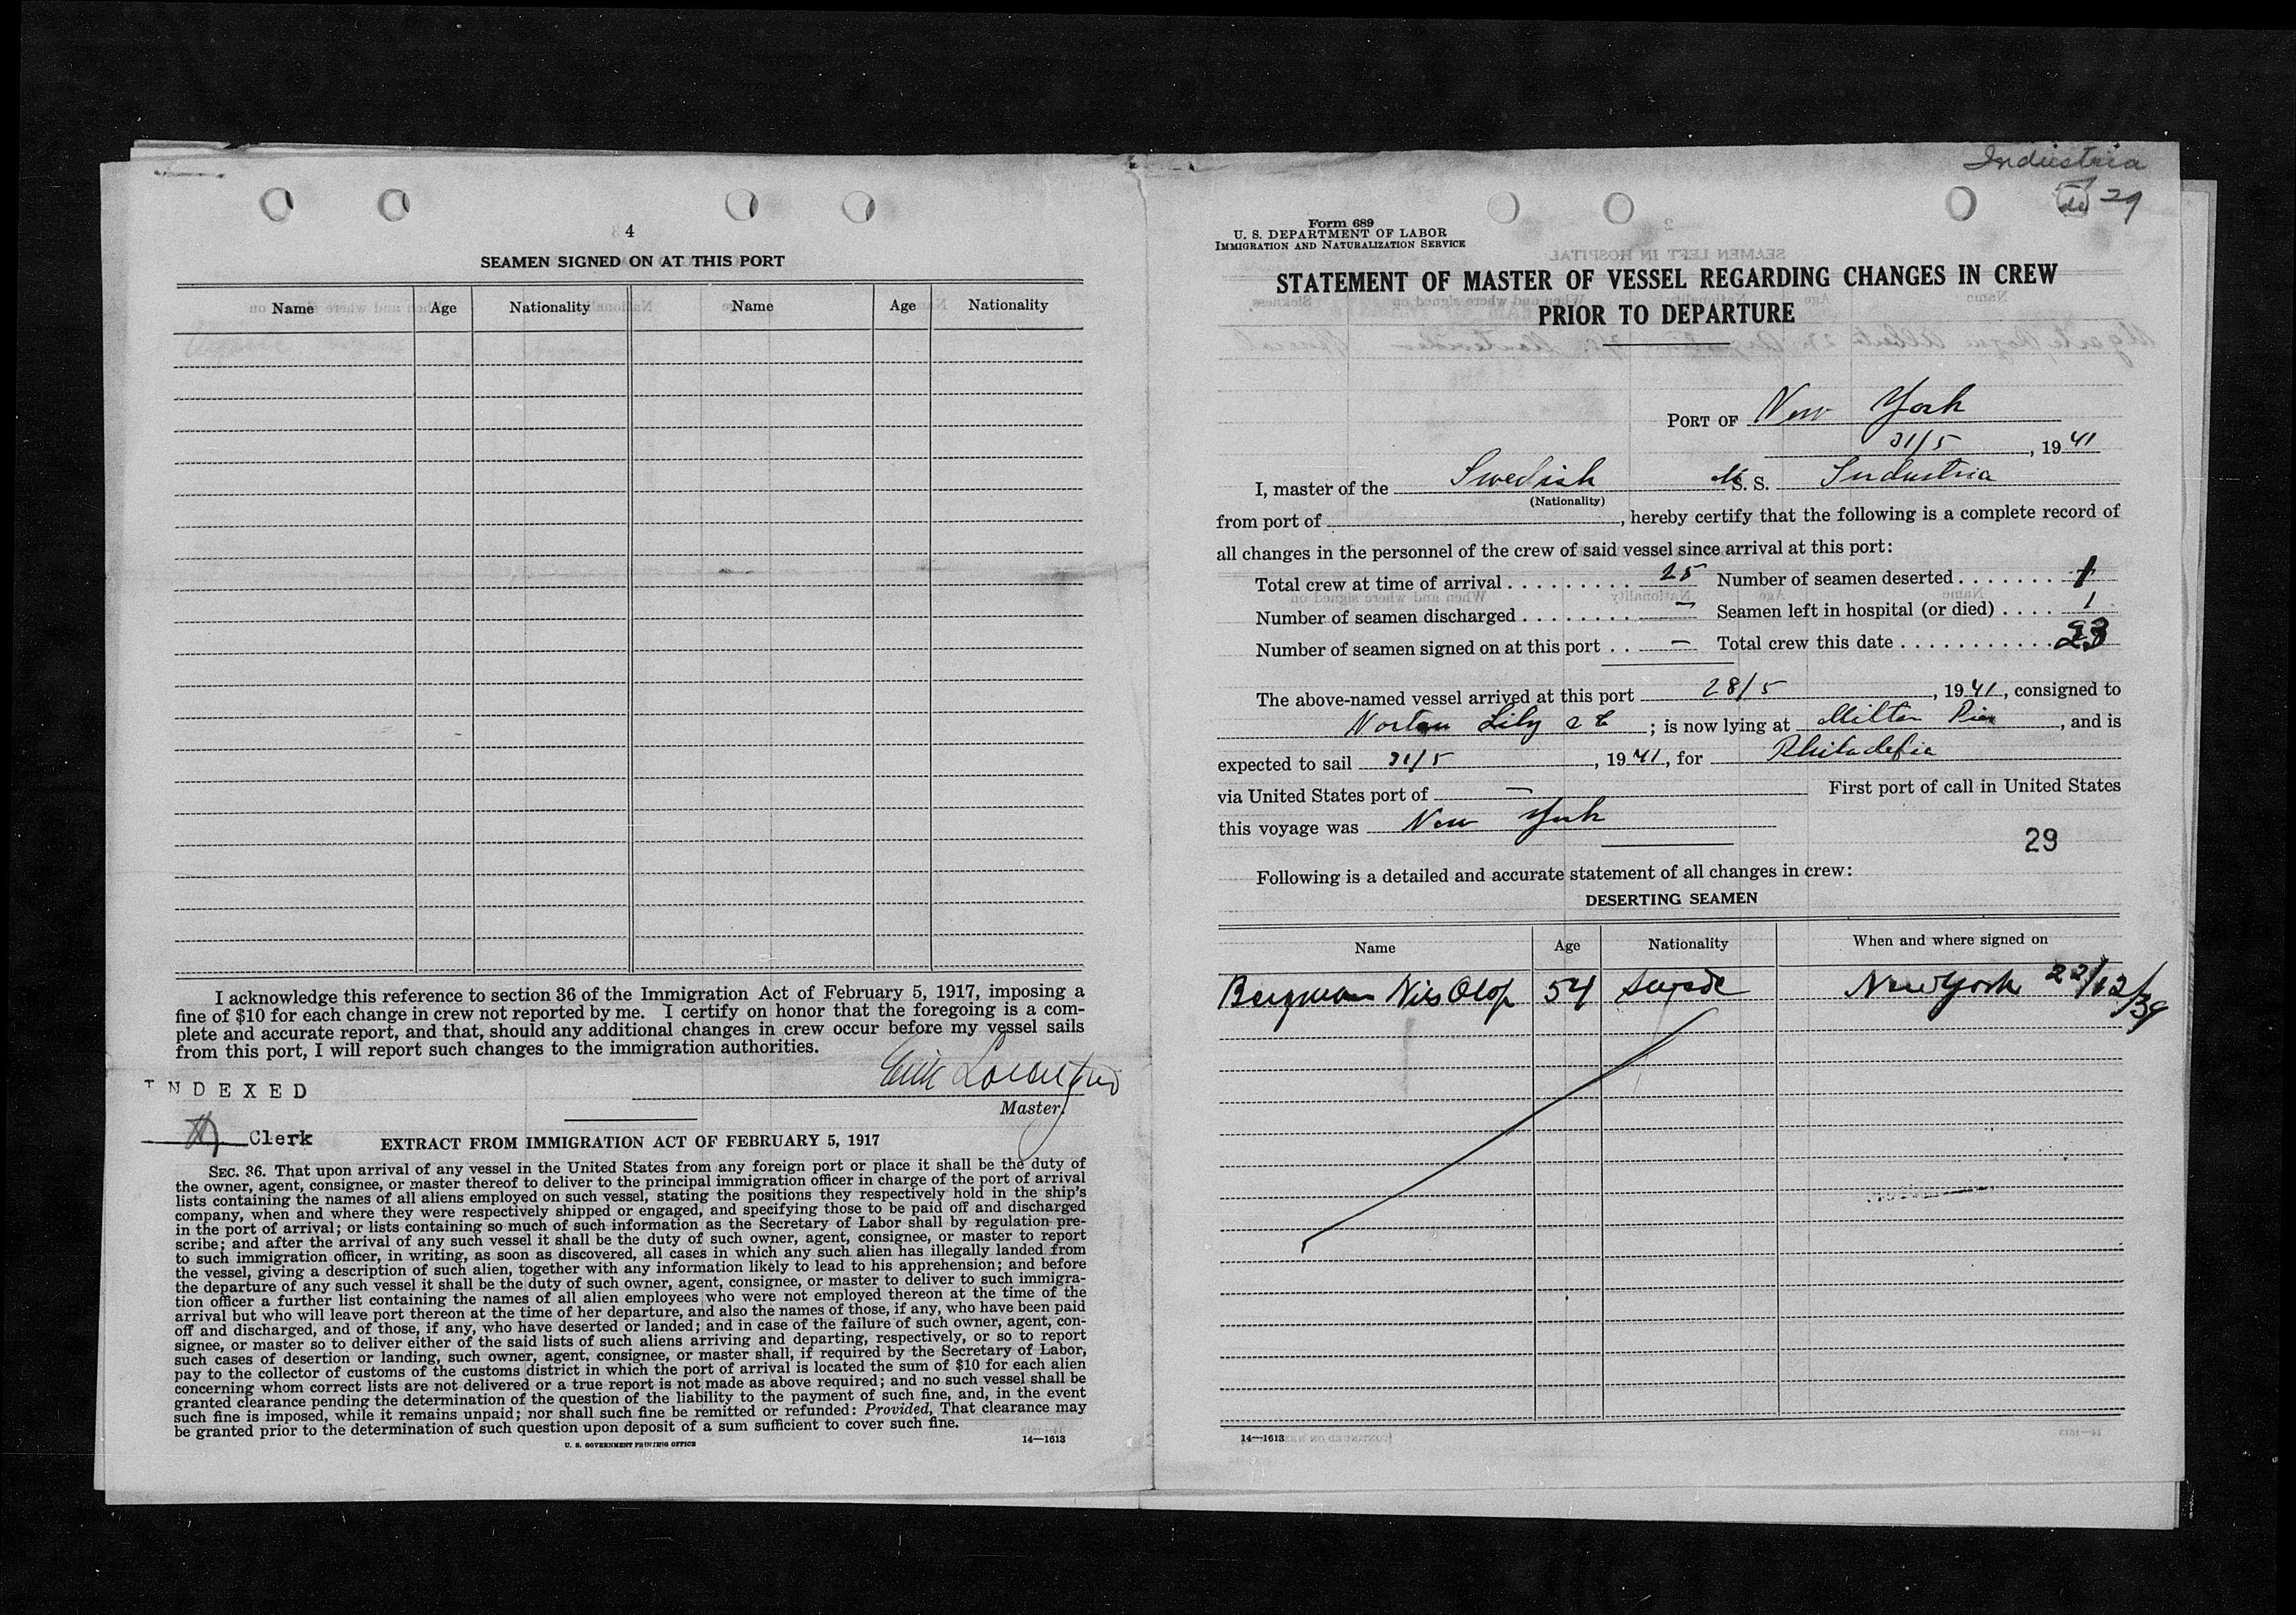 4
SEAMEN SIGNED ON AT THIS PORT
Name Age Nationality Name Age Nationality
I acknowledge this reference to section 36 of the Immigration Act of February 5, 1917, imposing a
fine of $10 for each change in crew not reported by me. I certify on honor that the foregoing is a com-
plete and accurate report, and that, should any additional changes in crew occur before my vessel sails
from this port, I will report such changes to the immigration authorities.
Erik
Master.
INDEXED
Clerk
EXTRACT FROM IMMIGRATION ACT OF FEBRUARY 5, 1917
SEC. 36. That upon arrival of any vessel in the United States from any foreign port or place it shall be the duty of
the owner, agent, consignee, or master thereof to deliver to the principal immigration officer in charge of the port of arrival
lists containing the names of all aliens employed on such vessel, stating the positions they respectively hold in the ship's
company, when and where they were respectively shipped or engaged, and specifying those to be paid off and discharged
in the port of arrival; or lists containing so much of such information as the Secretary of Labor shall by regulation pre-
scribe; and after the arrival of any such vessel it shall be the duty of such owner, agent, consignee, or master to report
to such immigration officer, in writing, as soon as discovered, all cases in which any such alien has illegally landed from
the vessel, giving a description of such alien, together with any information likely to lead to his apprehension; and before
the departure of any such vessel it shall be the duty of such owner, agent, consignee, or master to deliver to such immigra-
tion officer a further list containing the names of all alien employees who were not employed thereon at the time of the
arrival but who will leave port thereon at the time of her departure, and also the names of those, if any, who have been paid
off and discharged, and of those, if any, who have deserted or landed; and in case of the failure of such owner, agent, con-
signee, or master so to deliver either of the said lists of such aliens arriving and departing, respectively, or so to report
such cases of desertion or landing, such owner, agent, consignee, or master shall, if required by the Secretary of Labor,
pay to the collector of customs of the customs district in which the port of arrival is located the sum of $10 for each alien
concerning whom correct lists are not delivered or a true report is not made as above required; and no such vessel shall be
granted clearance pending the determination of the question of the liability to the payment of such fine, and, in the event
such fine is imposed, while it remains unpaid; nor shall such fine be remitted or refunded: Provided, That clearance may
be granted prior to the determination of such question upon deposit of a sum sufficient to cover such fine.
U. S. GOVERNMENT PRINTING OFFICE 14—1613
Industria
29
Form 689
U. S. DEPARTMENT OF LABOR
IMMIGRATION AND NATURALIZATION SERVICE
STATEMENT OF MASTER OF VESSEL REGARDING CHANGES IN CREW
PRIOR TO DEPARTURE
PORT OF New York
31/5, 1941
I, master of the Swedish M S. S. Industria
(Nationality)
from port of , hereby certify that the following is a complete record of
all changes in the personnel of the crew of said vessel since arrival at this port:
Total crew at time of arrival 25 Number of seamen deserted 1
Number of seamen discharged — Seamen left in hospital (or died) 1
Number of seamen signed on at this port — Total crew this date 23
The above-named vessel arrived at this port 28/5, 1941, consigned to
Norton Lily & Co ; is now lying at Milton Pier, and is
expected to sail 31/5, 1941, for Philadefia
via United States port of — First port of call in United States
this voyage was New York
29
Following is a detailed and accurate statement of all changes in crew:
DESERTING SEAMEN
Name Age Nationality When and where signed on
Bergman Nils Olof 54 Swede New York 22/12/39
14—1613